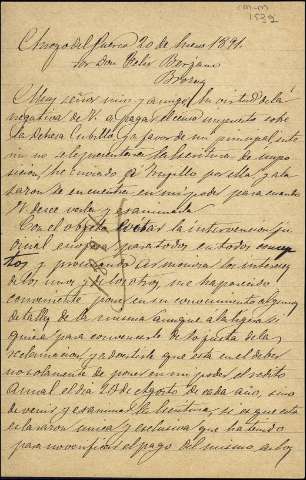 Arroyo del Puerco 20 de Enero 1891.
Sr Don Felix Borjano
Brozas
Muy señor mio y amigo: En virtud de la
negativa de V. a pagar el censo impuesto sobre
la dehesa Cubillo á favor de mi principal inte
rin no se le presentara la escritura de impo
sicion, he enviado á Trujillo por ella y a la
sazon se encuentra en mi poder para cuando
V. desee verla y examinarla
Con el objeto de evitar la intervencion ju
dicial enojosa para todos en todos concep
tos y procurando armonizar los intereses
de los unos y de los otros, me ha parecido
conveniente poner en su conocimiento algunos
detalles de la misma aunque a la ligera si
quiera para convencerle de lo justa de la
reclamacion y advertirle que esta en el deber
no solamente de poner en mi poder el redito
anual el dia 28 de Agosto de cada año, sino
de venir y examinar la escritura, si es que esta
es la razon unica y exclusiva que ha tenido
para no verificar el pago del mismo, a los